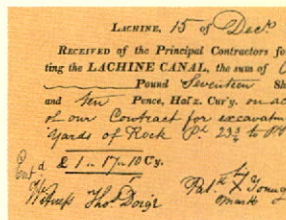 LACHINE, 15 of Decr
RECEIVED of the Principal Contractors fo
ting the LACHINE CANAL, the sum of
Pound Seventeen Sh
and Ten Pence, Hal'x. Cur'y. on ac
of our Contract for excavatin
yards of Rock
£ 1 17 10 Cy.
Thos
mark